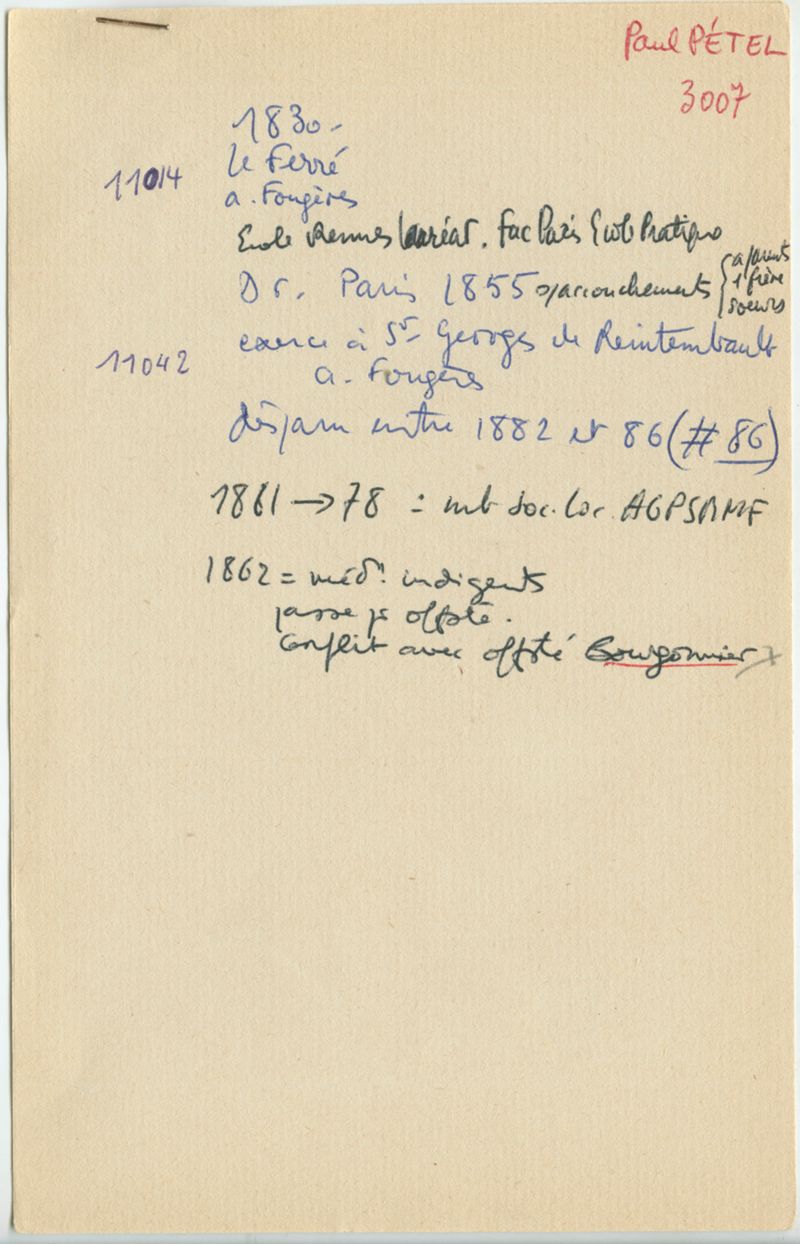 Paul PÉTEL
3007
1830-
le Ferré
11014
a. Fougères
Ecole Rennes lauréat. Fac Paris Ecole Pratique
Dr. Paris 1855 o/accouchements { a/parents
1 frère
soeurs
exerce à St Georges de Reintembault
11042
a. Fougères
disparu entre 1882 et 86 (# 86)
1861 → 78 = mb soc. loc. AGPSMMF
1862 = méd. indigents
passe ps offsté.
Conflit avec offsté Bourgonnier